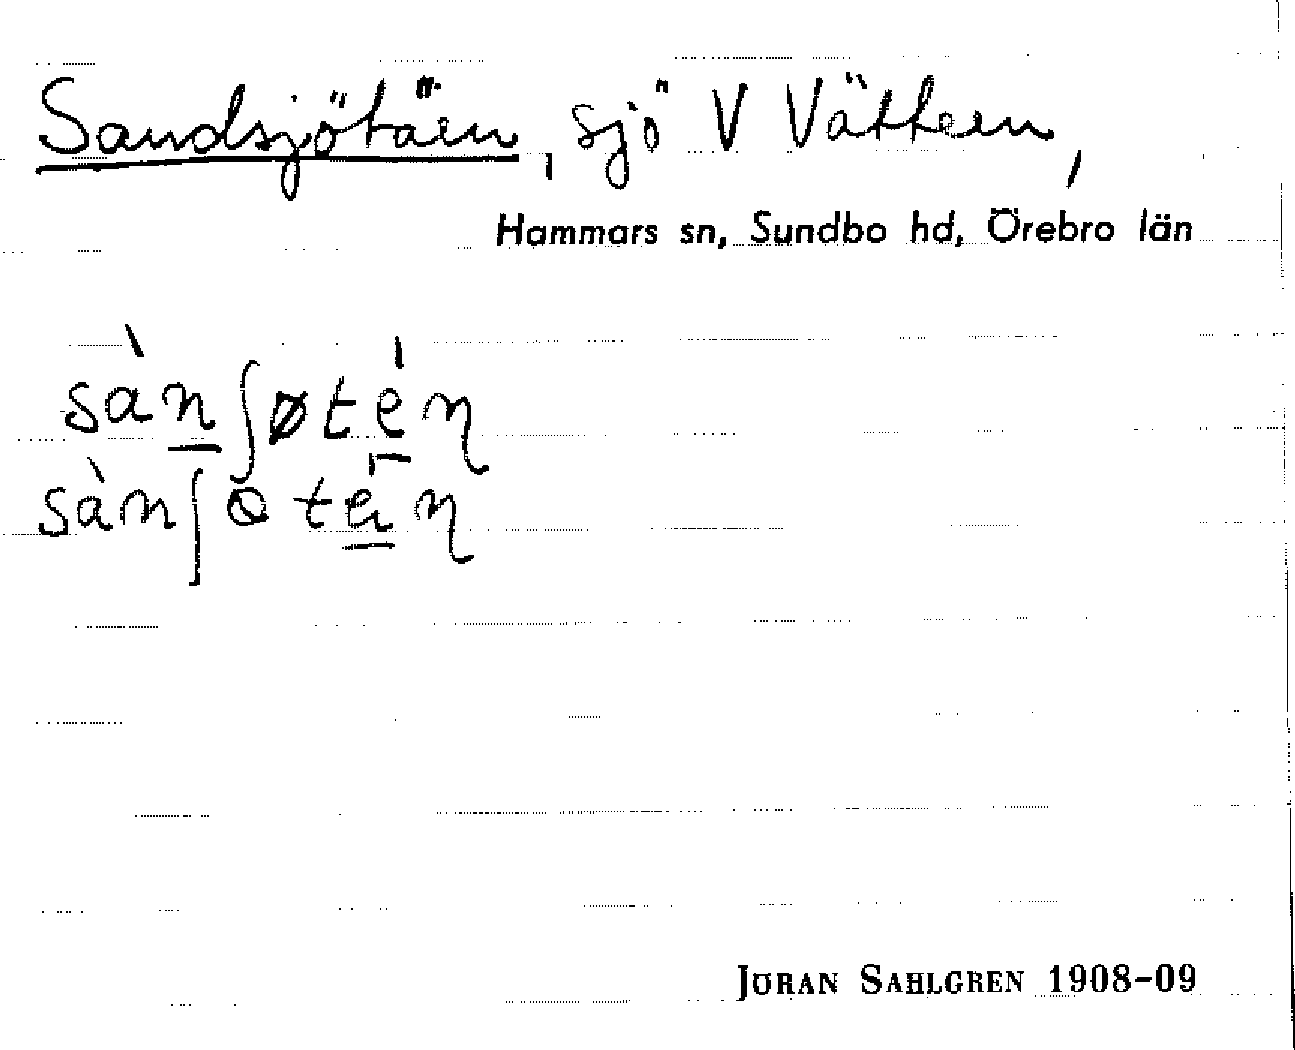 Sandsjötäen, sjö V Vättern,
Hammars sn, Sundbo hd, Örebro län
sàn∫øtén
sàn∫ɵtén
JÖRAN SAHLGREN 1908-09